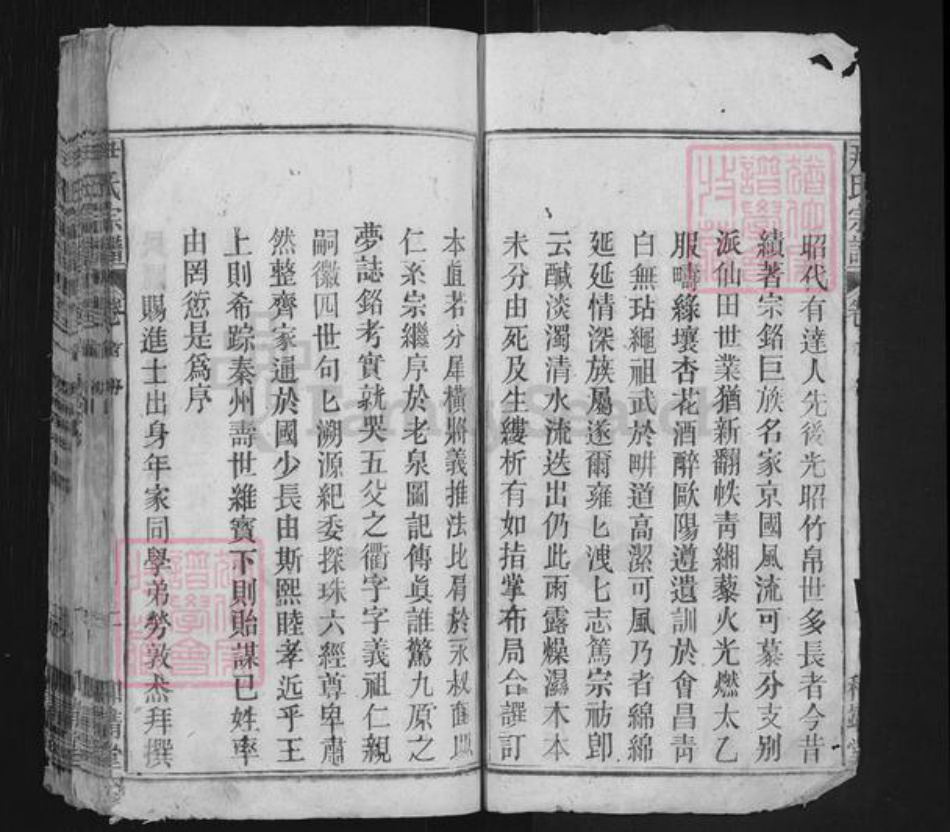 昭代有達人先後光昭竹帛世多長者今昔
績著宗銘巨族名家京國風流可慕分支別
派仙田世業猶新翻帙青緗藜火光燃太乙
服疇綠壤杏花酒醉歐陽遵遺訓於會昌靑
白無玷繩祖武於畊道高潔可風乃者綿綿
延延情深族屬遂爾雍匕洩匕志篤宗祊卽
云醎淡濁清水流迭出仍此雨露燥濕木本
未分由死及生縷析有如指掌布局合譔訂
本直若分犀橫將義推法比肩於永叔
仁系宗繼序於老泉圖記傳眞誰驚九原之
夢誌銘考實就哭五父之衢字字義祖仁親
嗣徽四世句匕溯源紀委探珠六經尊卑肅
然整齊家通於國少長由斯熙睦孝近乎王
上則希踪秦州壽世維賓下則貽謀巳姓率
由罔愆是爲序
賜進士出身年家同學弟勞敦杰拜撰
氏宗譜
卷首
FamilySearch